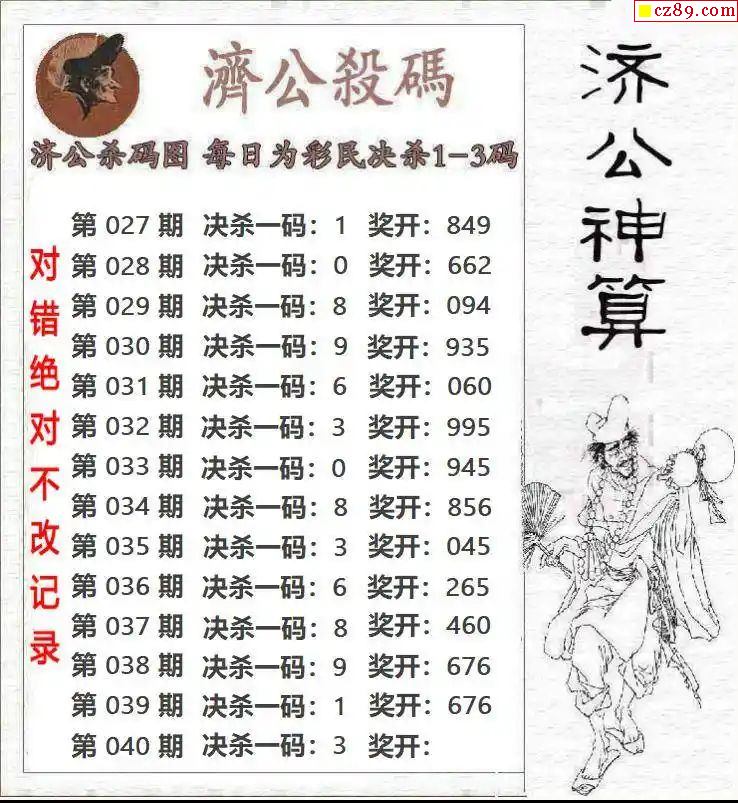 cz89.com
濟公殺碼
济公杀码图 每日为彩民决杀1-3码
第 027 期 决杀一码：1 奖开：849
第 028 期 决杀一码：0 奖开：662
第 029 期 决杀一码：8 奖开：094
第 030 期 决杀一码：9 奖开：935
第 031 期 决杀一码：6 奖开：060
第 032 期 决杀一码：3 奖开：995
第 033 期 决杀一码：0 奖开：945
第 034 期 决杀一码：8 奖开：856
第 035 期 决杀一码：3 奖开：045
第 036 期 决杀一码：6 奖开：265
第 037 期 决杀一码：8 奖开：460
第 038 期 决杀一码：9 奖开：676
第 039 期 决杀一码：1 奖开：676
第 040 期 决杀一码：3 奖开：
对错绝对不改记录
济公神算